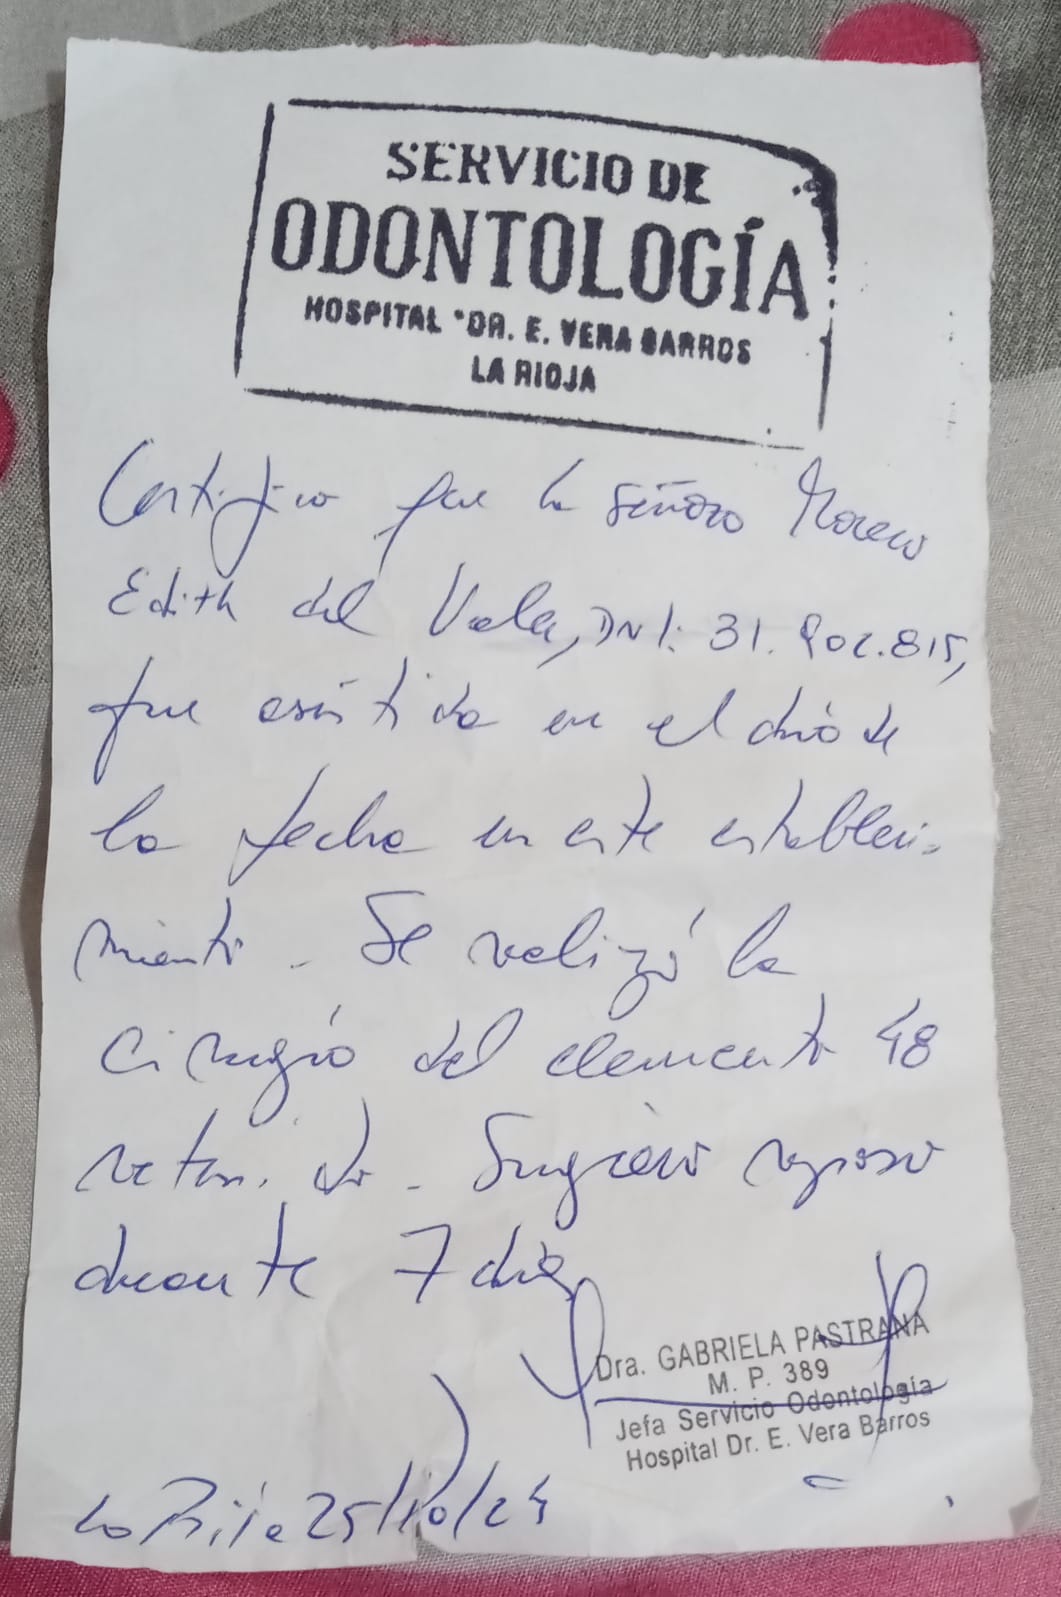 SERVICIO DE
ODONTOLOGÍA
HOSPITAL "DR. E. VERA BARROS
LA RIOJA
Certifico que la señora Moreno
Edith del Valle, DNI: 31.902.815,
fue asistida en el día de
la fecha en este estableci-
miento. Se realizó la
cirugía del elemento 48
retenido. Sugiero reposo
durante 7 días
Dra. GABRIELA PASTRANA
M. P. 389
Jefa Servicio Odontología
Hospital Dr. E. Vera Barros
La Rioja 25/10/24